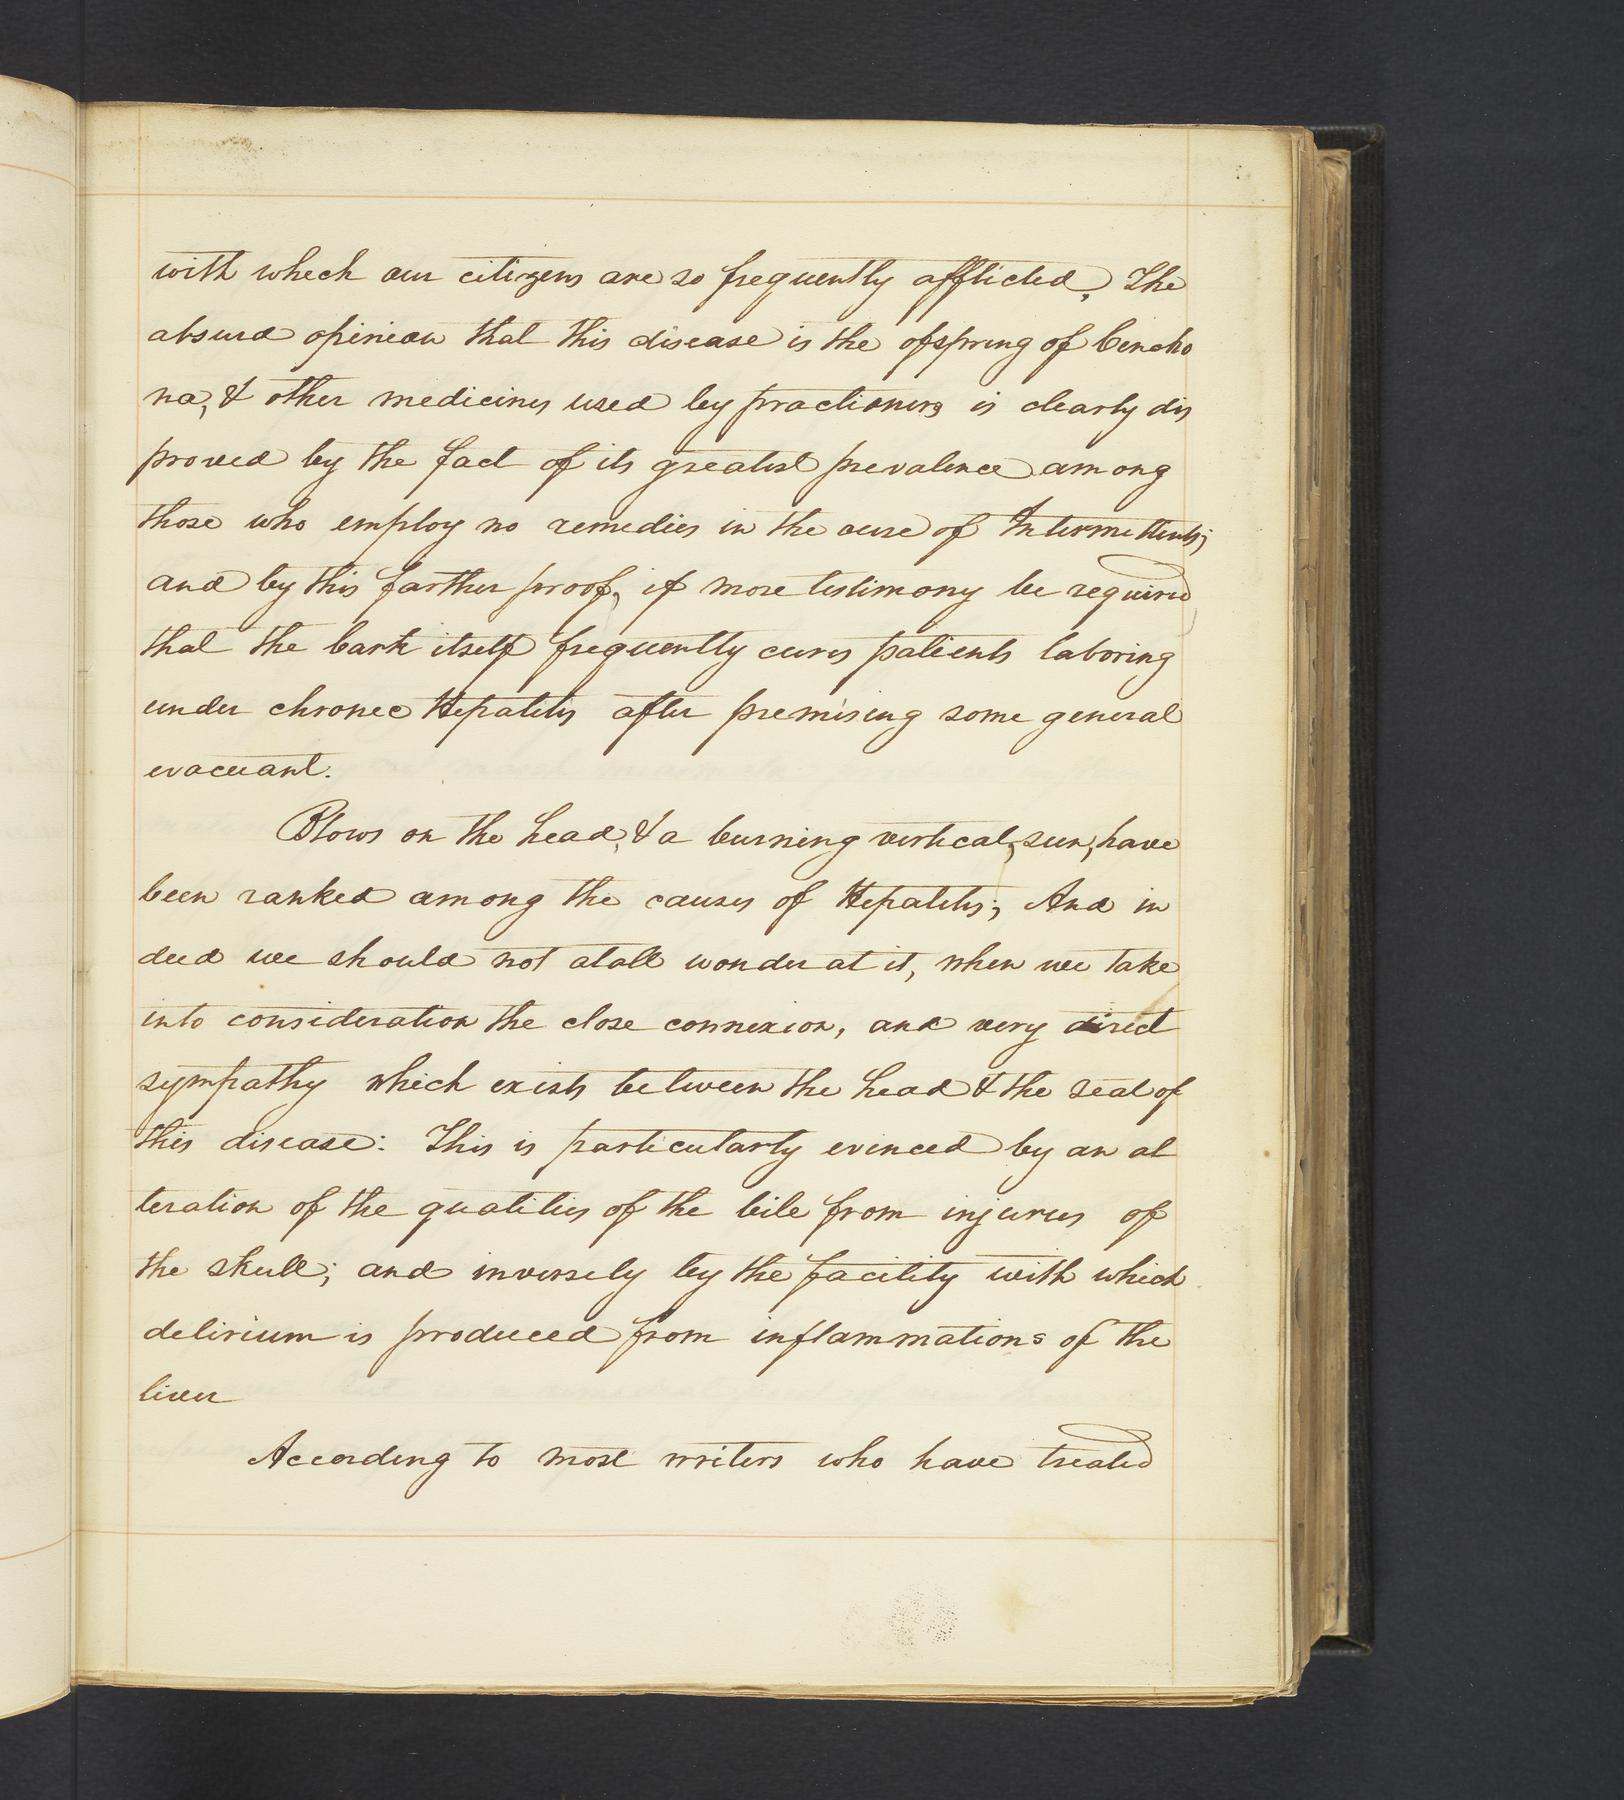 with which our citizens are so frequently afflicted, The
absurd opinion that this disease is the ofspring of Cincho
na, & other medicines used by practioners is clearly dis
proved by the fact of its greatest prevalence among
those who employ no remedies in the cure of Intermittents;
and by this farther proof, if more testimony be required
that the bark itself frequently cures patients laboring
under chronic Hepatitis after premising some general
evacuant.
Blows on the head, & a burning vertical, sun, have
been ranked among the causes of Hepatitis; And in
deed we should not atall wonder at it, when we take
into consideration the close connexion, and very direct
sympathy which exists between the head & the seat of
this disease: This is particularly evinced by an al
teration of the qualities of the bile from injuries of
the skull; and inversely by the facility with which
delirium is produced from inflammations of the
liver
According to most writers who have treated